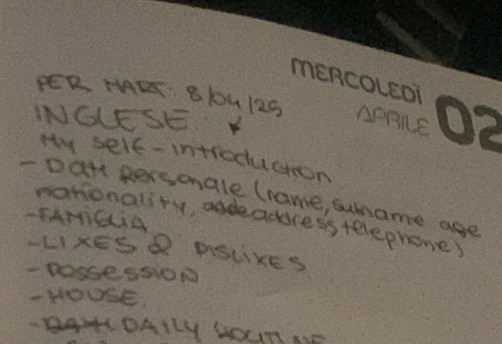 MERCOLEDÌ
APRILE 02
PER MART. 8/04/25
INGLESE:
My self-introduction
- Dati personale (name, surname age
nationality, address, telephone)
- FAMIGLIA
- LIKES & DISLIKES
- POSSESSION
- HOUSE
- DAILY ROUTINE